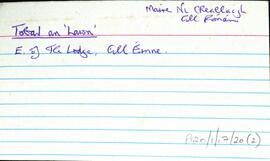 Maire Ní Cheallaigh
Cill Rónáin
Tobal an 'Lawn'
E. of The Lodge, Cill Éinne.
P120/1/17/20 (2)